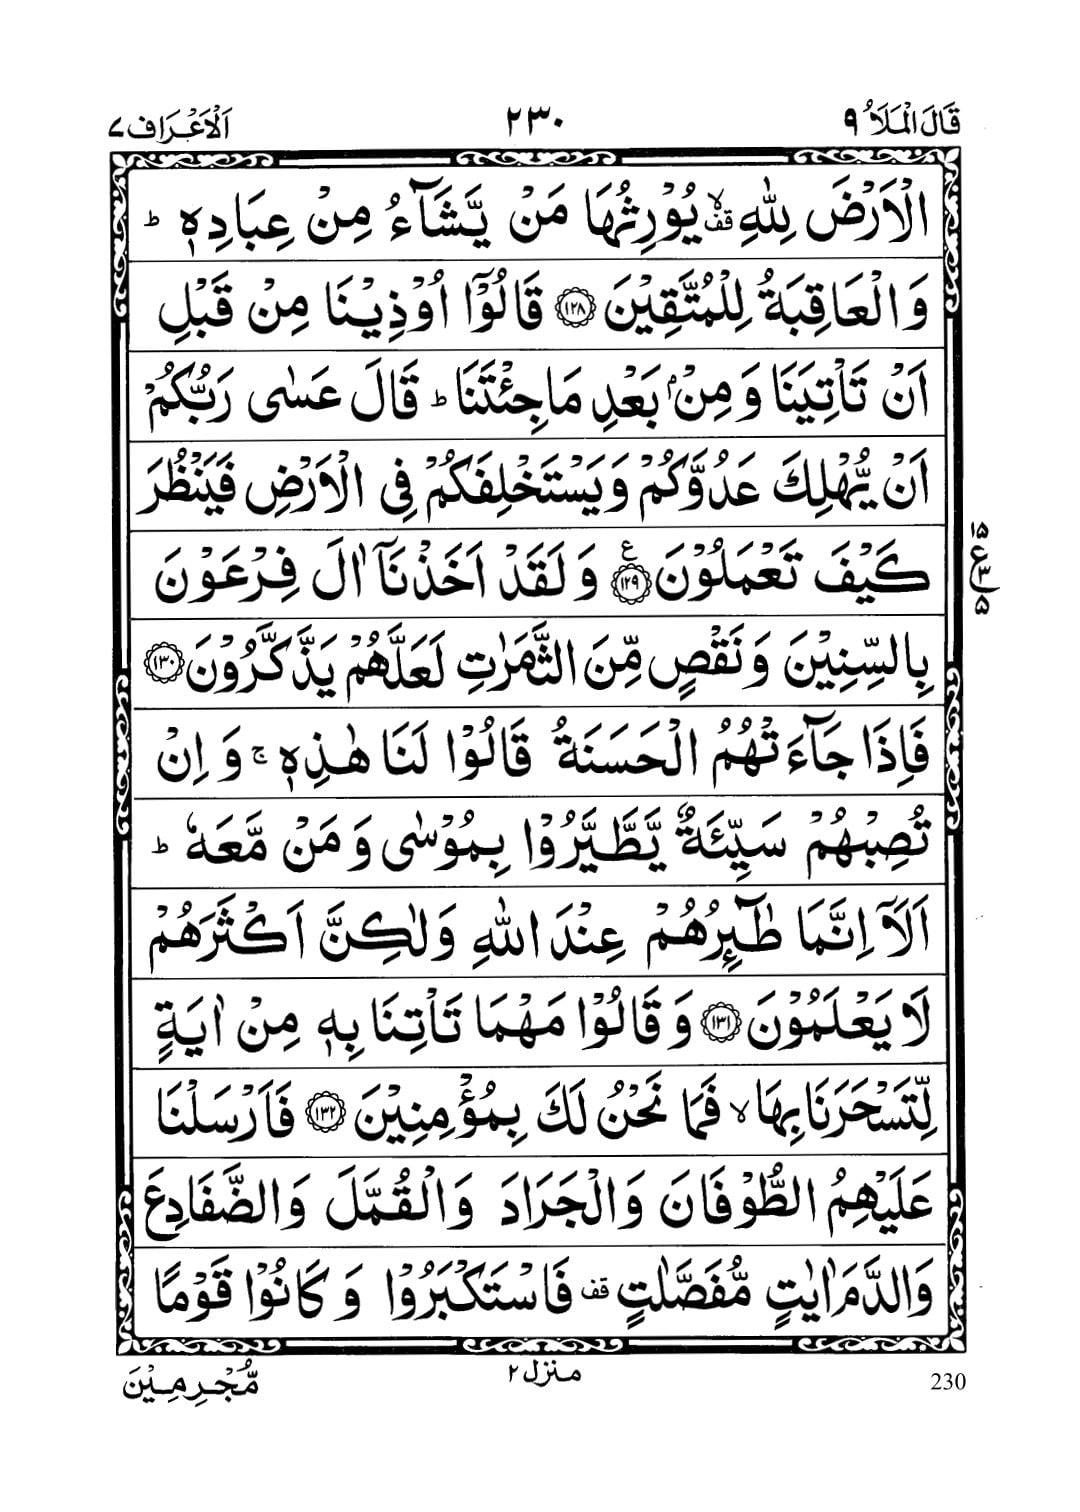 قَالَ الْمَلَاُ ٩
٢٣٠
اَلْاَعْرَاف ٧
الْاَرْضَ لِلّٰهِ ۙقف يُوْرِثُهَا مَنْ يَّشَآءُ مِنْ عِبَادِهٖ ؕ
وَالْعَاقِبَةُ لِلْمُتَّقِيْنَ ﴿١٢٨﴾ قَالُوْۤا اُوْذِيْنَا مِنْ قَبْلِ
اَنْ تَاْتِيَنَا وَ مِنْۢ بَعْدِ مَا جِئْتَنَا ؕ قَالَ عَسٰى رَبُّكُمْ
اَنْ يُّهْلِكَ عَدُوَّكُمْ وَيَسْتَخْلِفَكُمْ فِى الْاَرْضِ فَيَنْظُرَ
كَيْفَ تَعْمَلُوْنَ ﴿١٢٩﴾ ع وَلَقَدْ اَخَذْنَاۤ اٰلَ فِرْعَوْنَ
١٥
ع ٣
٥
بِالسِّنِيْنَ وَ نَقْصٍ مِّنَ الثَّمَرٰتِ لَعَلَّهُمْ يَذَّكَّرُوْنَ ﴿١٣٠﴾
فَاِذَا جَآءَتْهُمُ الْحَسَنَةُ قَالُوْا لَنَا هٰذِهٖ ۚ وَ اِنْ
تُصِبْهُمْ سَيِّئَةٌ يَّطَّيَّرُوْا بِمُوْسٰى وَ مَنْ مَّعَهٗ ؕ
اَلَاۤ اِنَّمَا طٰٓئِرُهُمْ عِنْدَ اللّٰهِ وَلٰكِنَّ اَكْثَرَهُمْ
لَا يَعْلَمُوْنَ ﴿١٣١﴾ وَ قَالُوْا مَهْمَا تَاْتِنَا بِهٖ مِنْ اٰيَةٍ
لِّتَسْحَرَنَا بِهَا ۙ فَمَا نَحْنُ لَكَ بِمُؤْمِنِيْنَ ﴿١٣٢﴾ فَاَرْسَلْنَا
عَلَيْهِمُ الطُّوْفَانَ وَالْجَرَادَ وَالْقُمَّلَ وَالضَّفَادِعَ
وَالدَّمَ اٰيٰتٍ مُّفَصَّلٰتٍ قف فَاسْتَكْبَرُوْا وَ كَانُوْا قَوْمًا
مُّجْرِمِيْنَ
منزل ٢
230